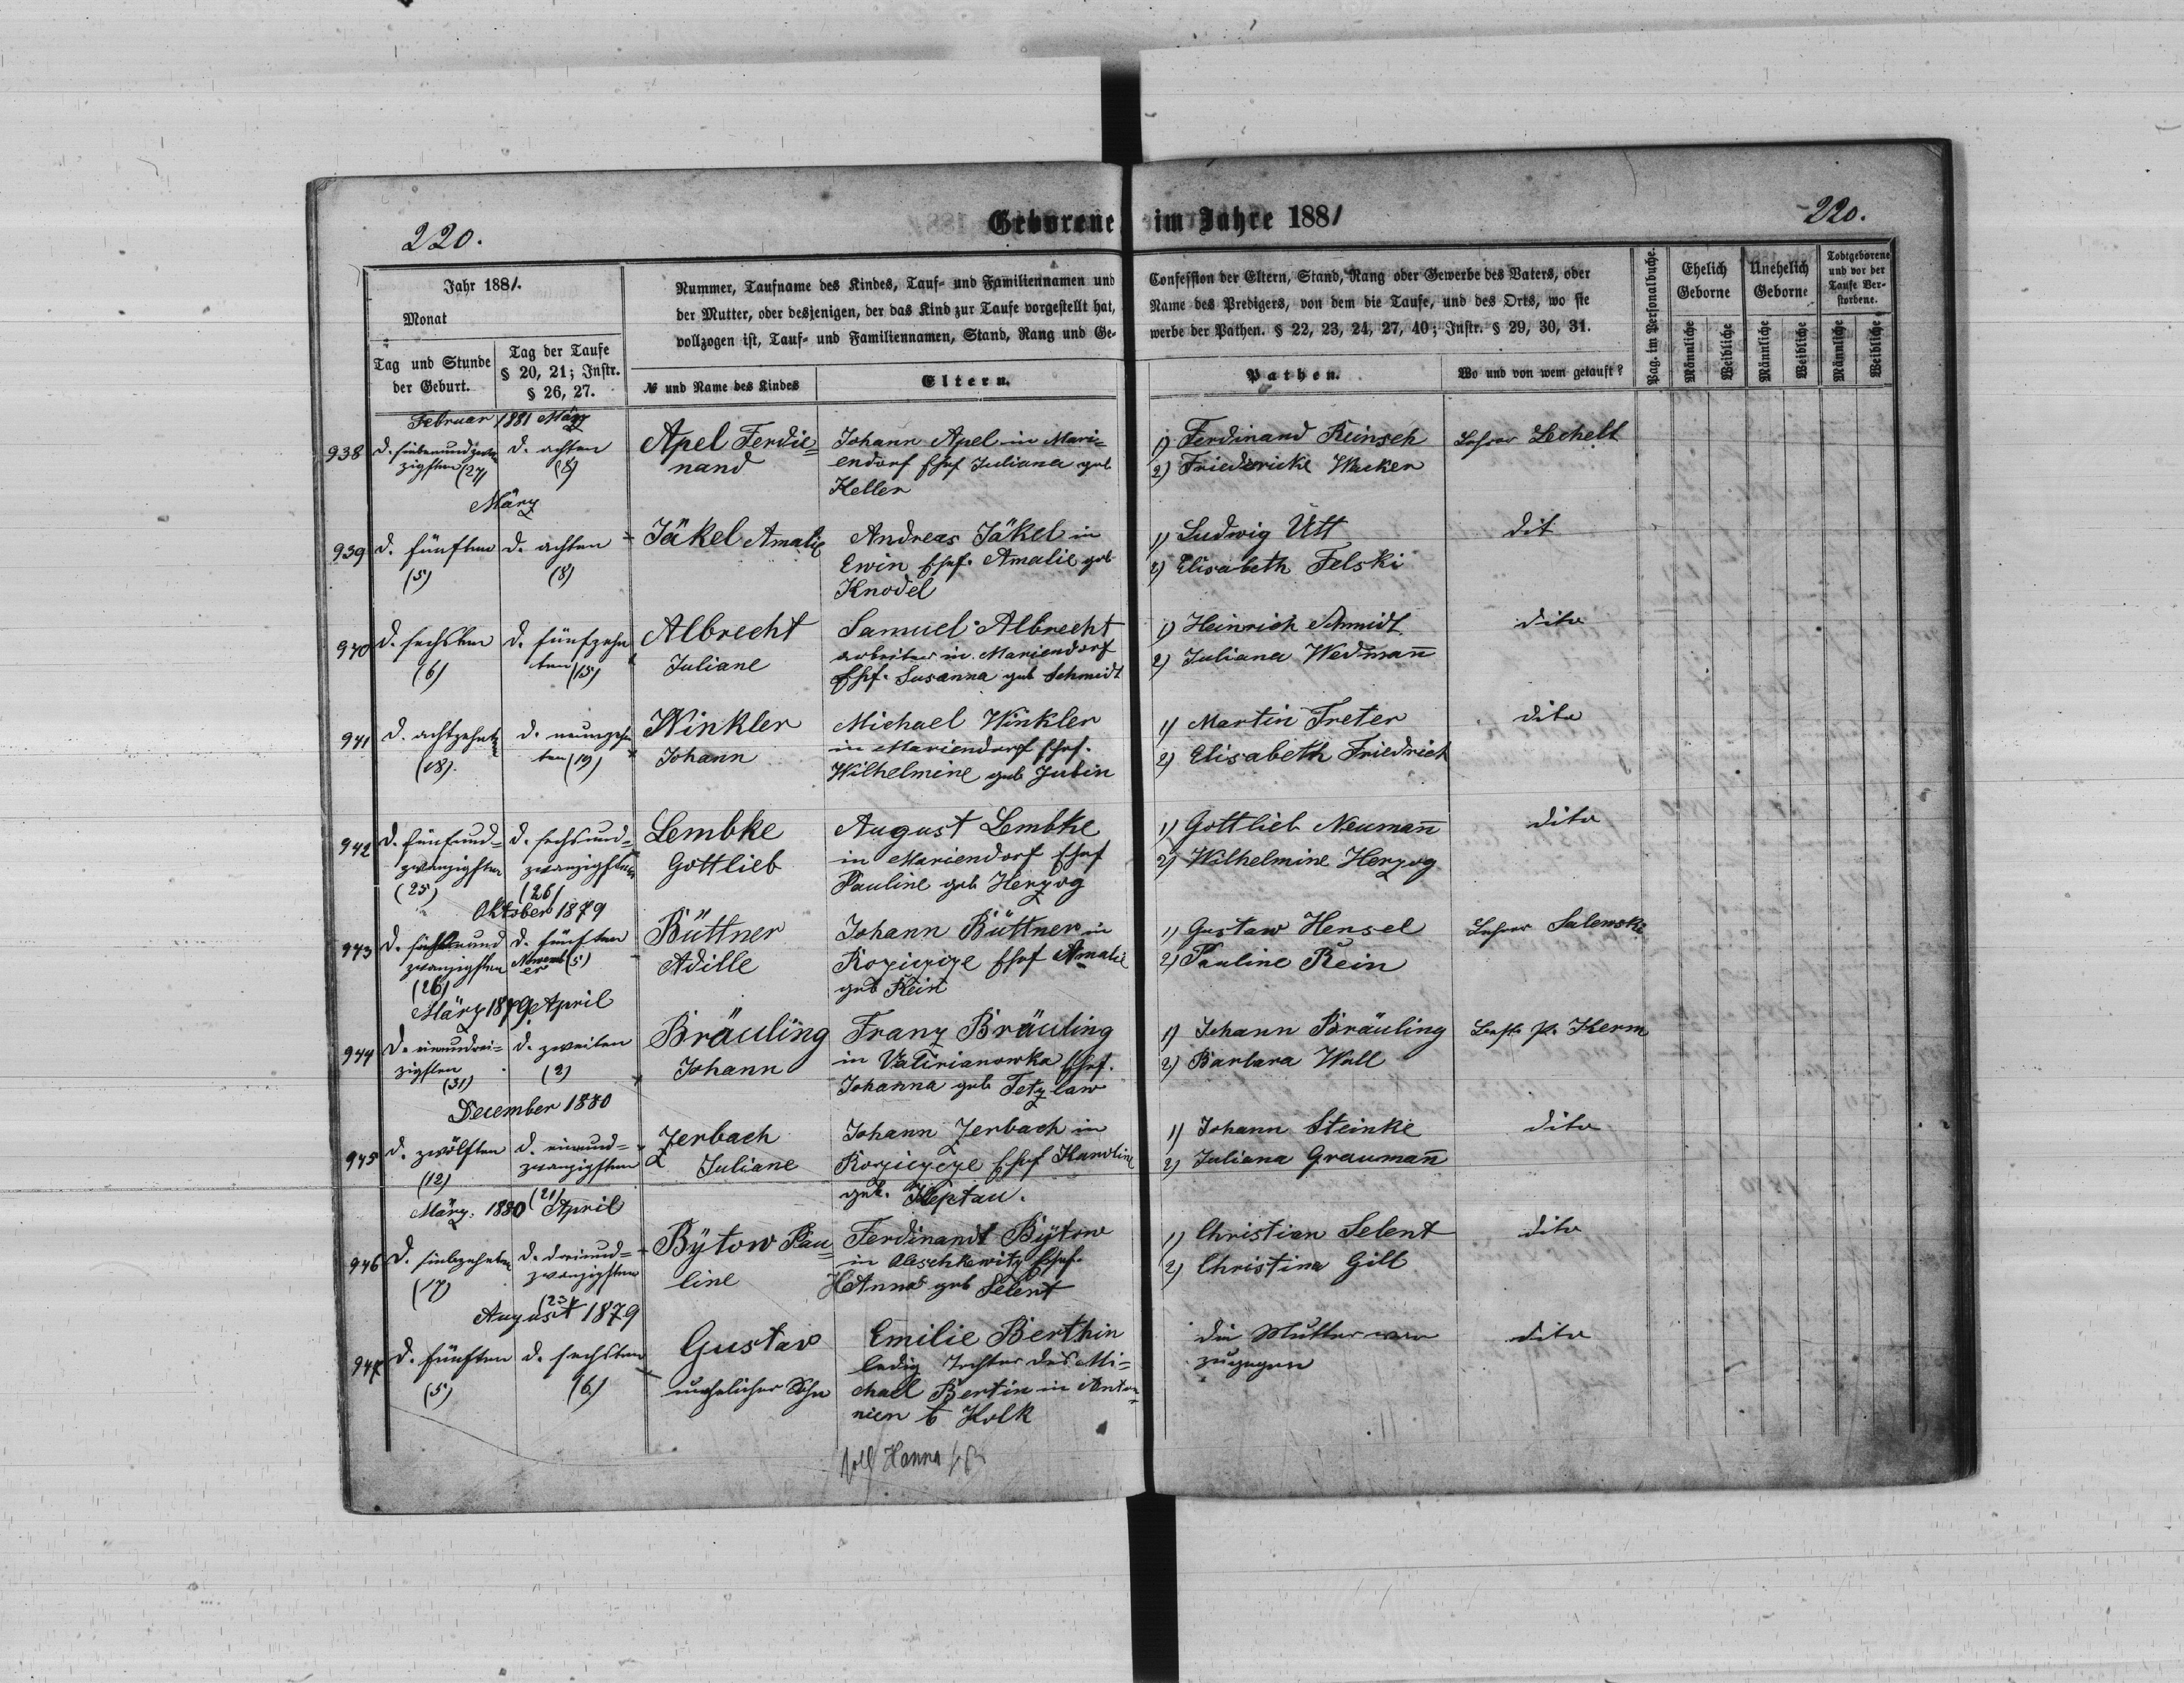 220.
Geborene im Jahre 1881
220.
Jahr 1881.
Monat
Tag und Stunde der Geburt.
Tag der Taufe § 20, 21; Instr. § 26, 27.
Nummer, Taufname des Kindes, Tauf- und Familiennamen und
der Mutter, oder desjenigen, der das Kind zur Taufe vorgestellt hat,
vollzogen ist, Tauf- und Familiennamen, Stand, Rang und Ge-
№ und Name des Kindes
Eltern.
Confession der Eltern, Stand, Rang oder Gewerbe des Vaters, oder
Name des Predigers, von dem die Taufe, und des Orts, wo sie
werbe der Pathen. § 22, 23, 24, 27, 40; Instr. § 29, 30, 31.
Pathen.
Wo und von wem getauft?
Pag. im Personalbuche.
Ehelich Geborne
Unehelich Geborne
Todtgeborene und vor der Taufe Verstorbene.
Männliche
Weibliche
Männliche
Weibliche
Männliche
Weibliche
Februar 1881 März
938 d. siebenundzwan-
zigsten (27)
d. achten
(8)
Apel Ferdie=
nand
Johann Apel in Mari=
endorf Ehef Juliana geb
Keller
1) Ferdinand Reinsch
2) Friedericke Wecker
Lehrer Lechelt
März
939 d. fünften
(5)
d. achten
(8)
Jäkel Amalie
Andreas Jäkel in
Ewin Ehef. Amalie geb
Knodel
1) Ludwig Utt
2) Elisabeth Felski
dit
940 d. sechsten
(6)
d. fünfzehn
ten (15)
Albrecht
Juliane
Samuel Albrecht
arbeiter in Mariendorf
Ehf. Susanna geb Schmidt
1) Heinrich Schmidt
2) Juliana Wedmann
dito
941 d. achtzehnten
(18).
d. neunzehn
ten (19)
Winkler
Johann
Michael Winkler
in Mariendorf Ehef.
Wilhelmine geb Jubin
1) Martin Treter
2) Elisabeth Friedrich
dito
942 d. fünfund=
zwanzigsten
(25)
d. sechsund=
zwanzigsten
(26)
Lembke
Gottlieb
August Lembke
in Mariendorf Ehef
Pauline geb Herzog
1) Gottlieb Neumann
2) Wilhelmine Herzog
dito
Oktober 1879
943 d. sechsund
zwanzigsten
(26)
d. fünften
Novemb
er (5)
Büttner
Adille
Johann Büttner in
Koziczyze Ehef Amalie
geb Rein
1) Gustaw Hensel
2) Pauline Rein
Lehrer Salewski
März 1879 April
944 d. einunddrei=
zigsten
(31)
d. zweiten
(2)
Bräuling
Johann
Franz Bräuling
in Valirianowka Ehef.
Johanna geb Tetzlaw
1) Johann Bräuling
2) Barbara Wall
p. Kerm
December 1880
945 d. zwölften
(12)
d. einund=
zwanzigsten
(21)
Zerbach
Juliane
Johann Zerbach in
Koziczyze Ehef Karoline
geb. Heptau.
1) Johann Steinke
2) Juliana Graumann
dito
März. 1880 April
946 d. siebzehnten
(17)
d. dreiund=
zwanzigsten
(23)
Bÿtow Pau=
line
Ferdinandt Bÿtow
in Oleschkewitz Ehef.
HAnna geb Selent
1) Christian Selent
2) Christina Gill
dito
August 1879
947 d. fünften
(5)
d. sechsten
(6)
Gustav
unehelicher Sohn
Emilie Berthin
ledig Tochter des Mi=
chael Bertin in Anto=
nien b Kolk
die Mutter war
zugegen
dito
soll Hanna